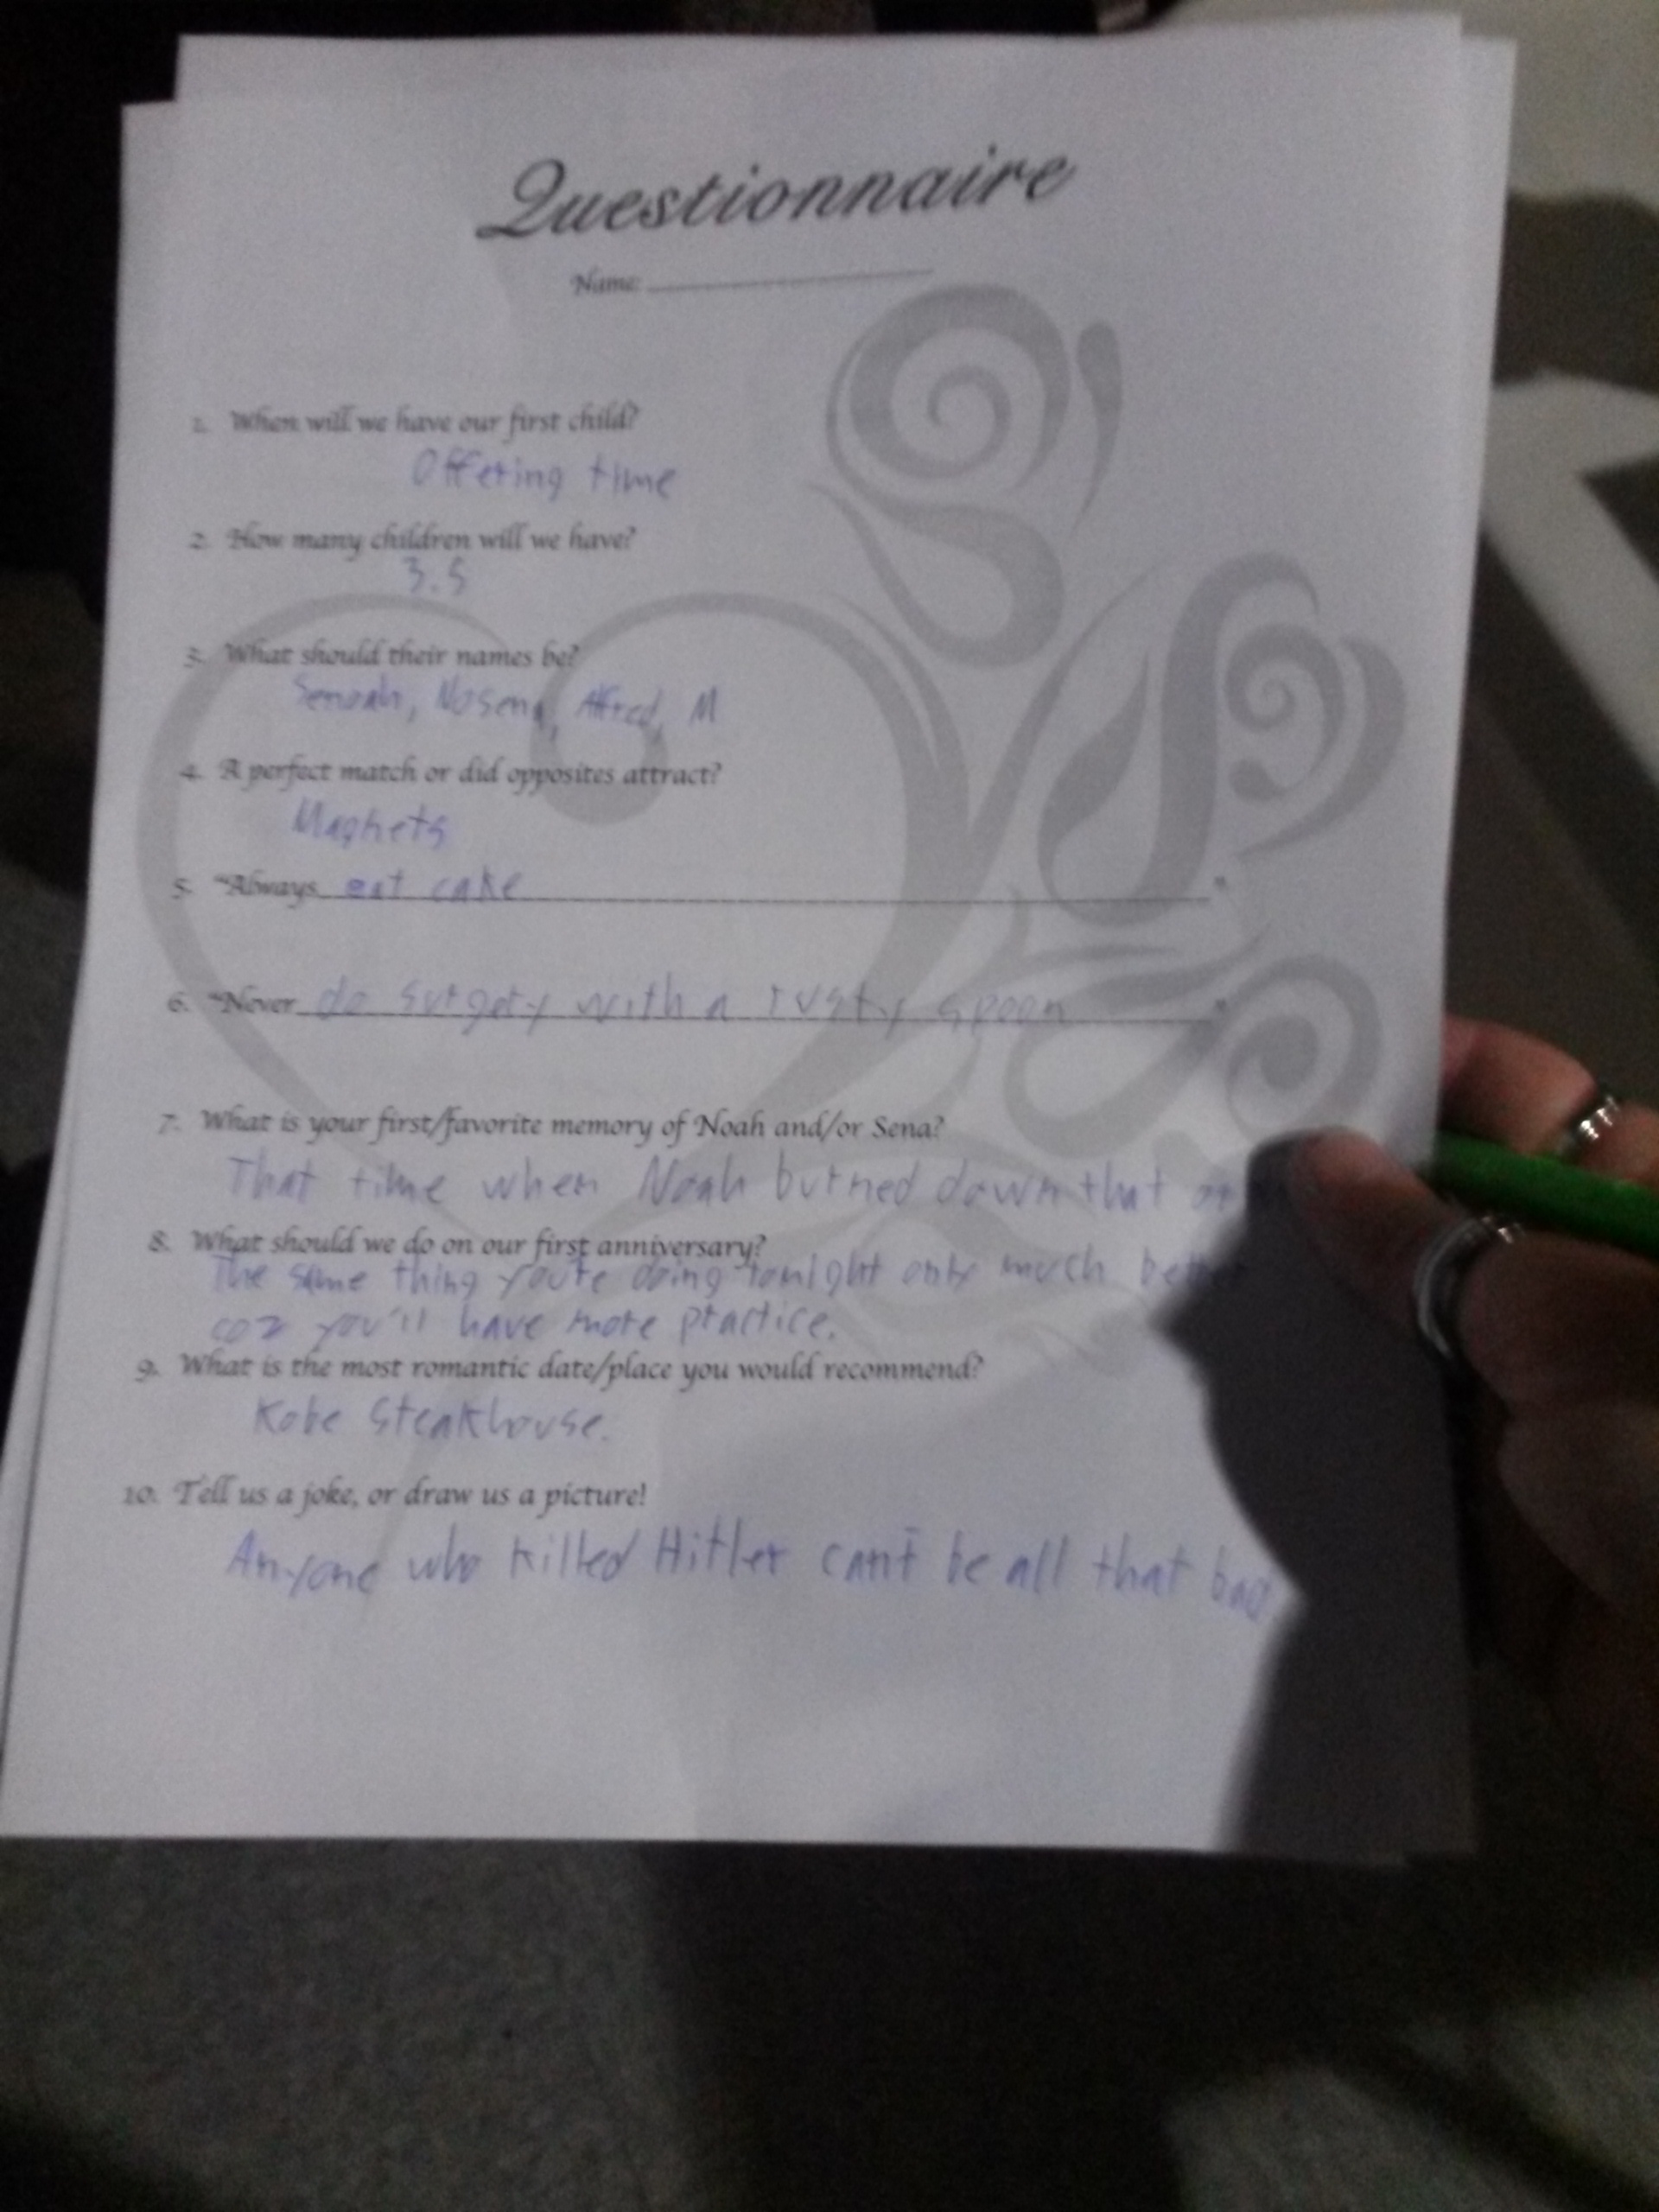 Questionnaire
Name:
1. When will we have our first child?
Offering time
2. How many children will we have?
3.5
3. What should their names be?
Senoah, Nosena, Alfred, M
4. A perfect match or did opposites attract?
Magnets
5. "Always eat cake"
6. "Never do surgery with a rusty spoon"
7. What is your first/favorite memory of Noah and/or Sena?
That time when Noah burned down that
8. What should we do on our first anniversary?
The same thing you're doing tonight only much better
coz you'll have more practice.
9. What is the most romantic date/place you would recommend?
Kobe Steakhouse.
10. Tell us a joke, or draw us a picture!
Anyone who killed Hitler can't be all that bad